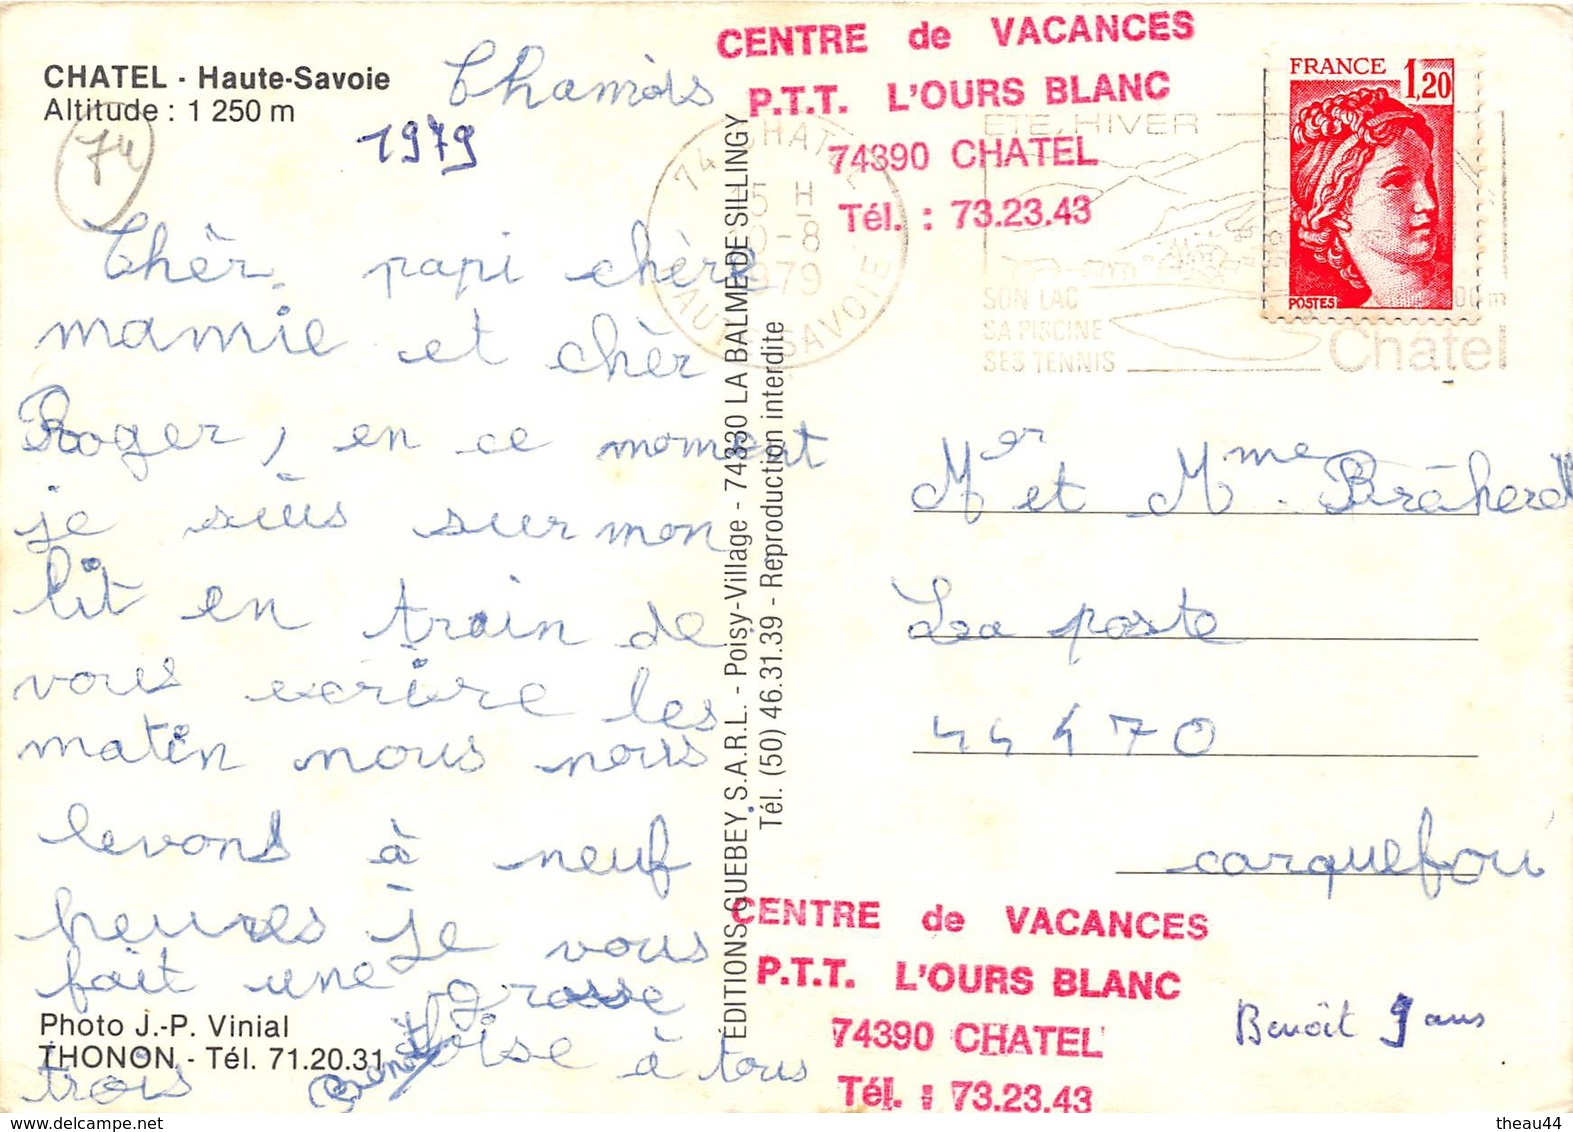 CHATEL - Haute-Savoie
Altitude : 1 250 m
74
Chamois
1979
Chèr papi chère
mamie et chèr
Roger, en ce moment
je suis sur mon
lit en train de
vous ecrivre les
matin nous nous
levons à neuf
heures je vous
fait une grosse
bise à tous
trois Benoit
Photo J.-P. Vinial
THONON - Tél. 71.20.31
ÉDITIONS GUEBEY S.A.R.L. - Poisy-Village - 74330 LA BALME DE SILLINGY
Tél. (50) 46.31.39 - Reproduction interdite
CENTRE de VACANCES
P.T.T. L'OURS BLANC
74390 CHATEL
Tél. : 73.23.43
74 CHATEL
15 H
-8
1979
HAUTE SAVOIE
ETE, HIVER
SON LAC
SA PISCINE
SES TENNIS
Châtel
FRANCE 1,20
POSTES
Mer et Mme
La poste
44470
carquefou
CENTRE de VACANCES
P.T.T. L'OURS BLANC
74390 CHATEL
Tél. : 73.23.43
Benoît 9 ans
theau44